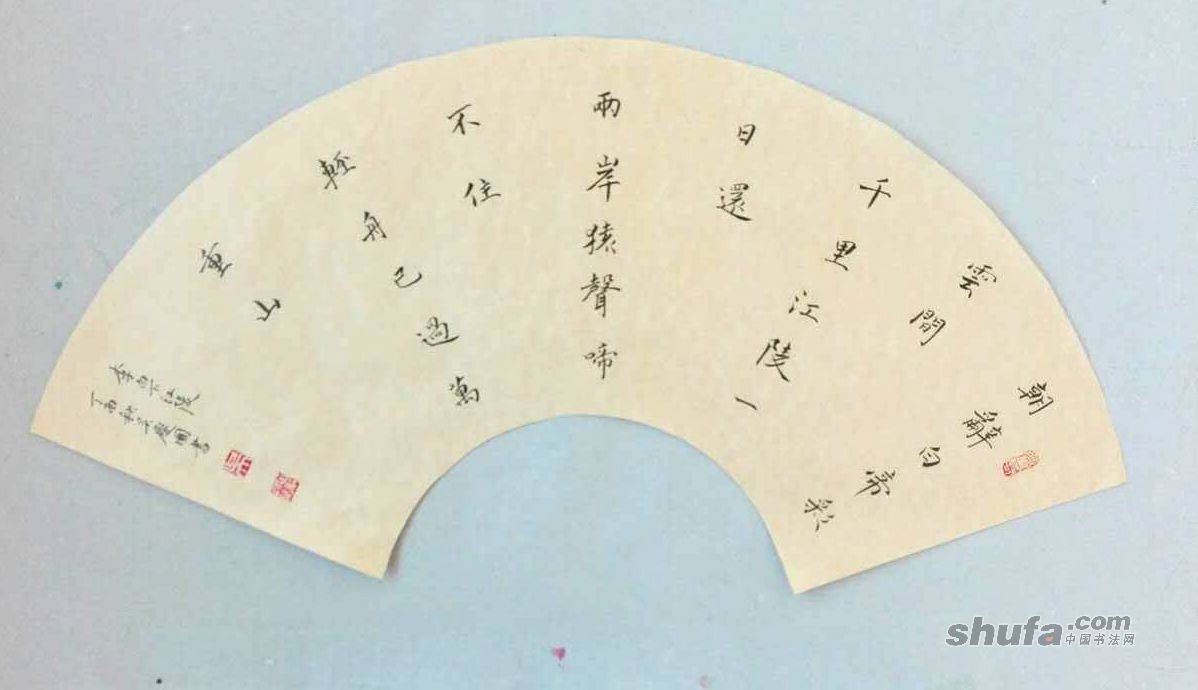 朝辭白帝彩
雲間
千里江陵一
日還
兩岸猿聲啼
不住
輕舟已過萬
重山
李白下江陵
丁酉秋 慶國書
shufa.com
中国书法网